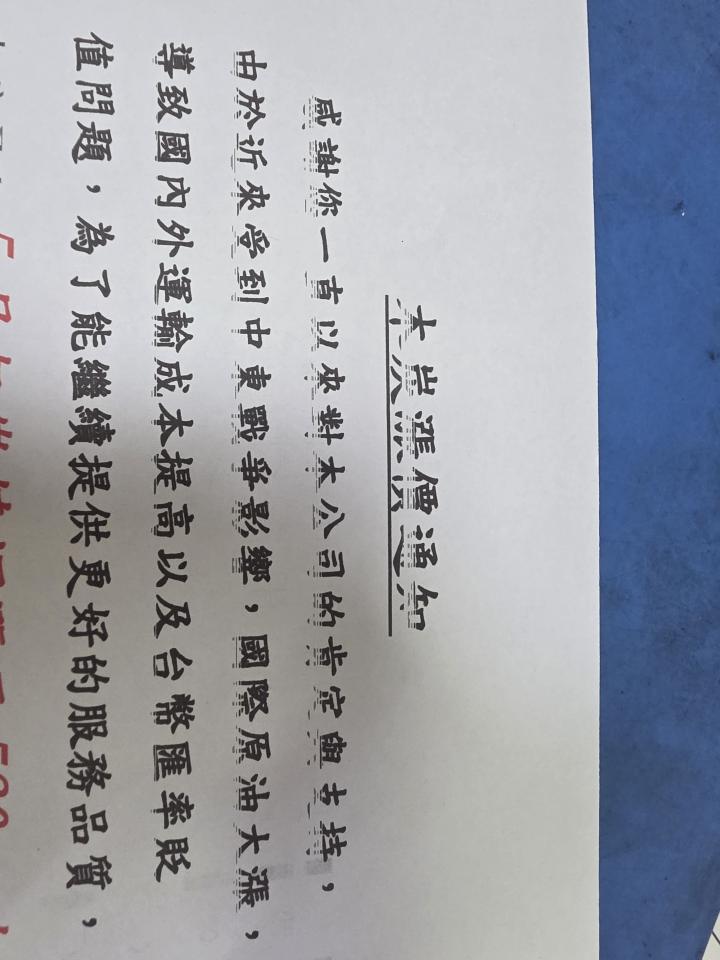 木炭漲價通知
感謝你一直以來對本公司的肯定與支持，
由於近來受到中東戰爭影響，國際原油大漲，
導致國內外運輸成本提高以及台幣匯率貶
值問題，為了能繼續提供更好的服務品質，